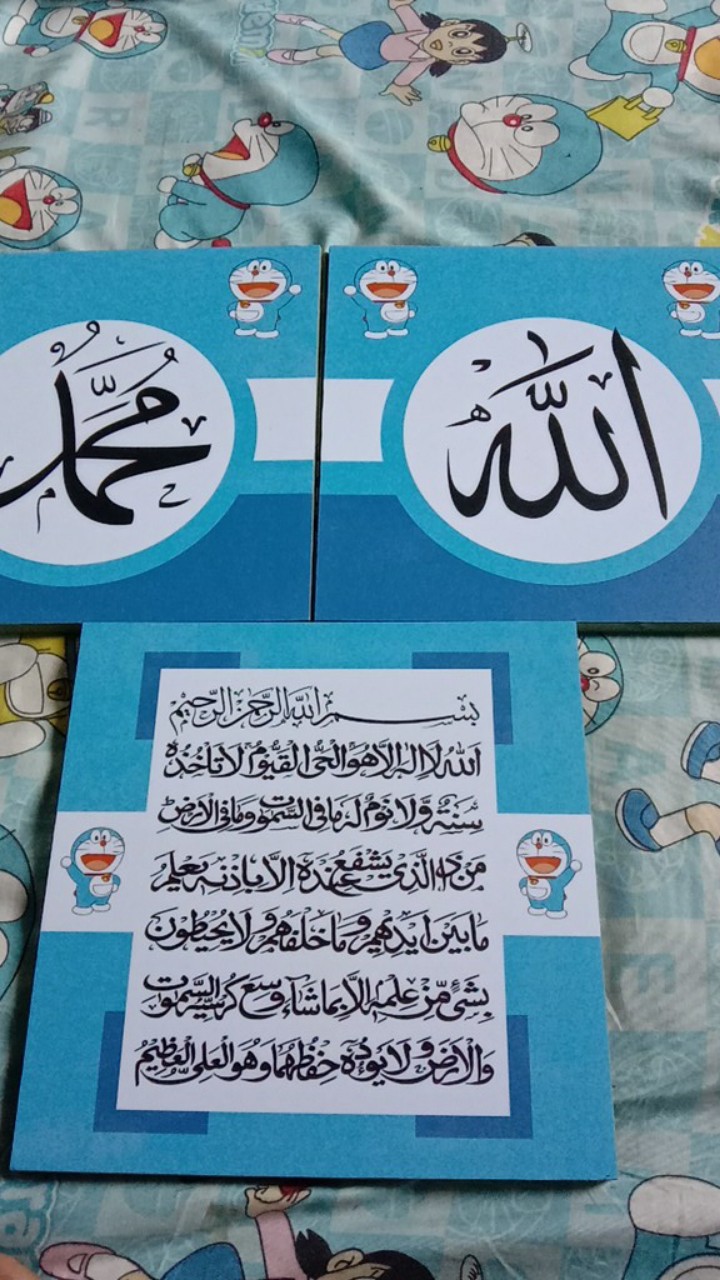 اللّٰه
مُحَمَّد
بِسْمِ اللهِ الرَّحْمٰنِ الرَّحِيْمِ
اَللهُ لَا اِلٰهَ اِلَّا هُوَ الْحَىُّ الْقَيُّوْمُ لَا تَأْخُذُهٗ
سِنَةٌ وَّلَا نَوْمٌ لَهٗ مَا فِى السَّمٰوٰتِ وَمَا فِى الْاَرْضِ
مَنْ ذَا الَّذِىْ يَشْفَعُ عِنْدَهٗ اِلَّا بِاِذْنِهٖ يَعْلَمُ
مَا بَيْنَ اَيْدِيْهِمْ وَمَا خَلْفَهُمْ وَلَا يُحِيْطُوْنَ
بِشَىْءٍ مِّنْ عِلْمِهٖ اِلَّا بِمَا شَآءَ وَسِعَ كُرْسِيُّهُ السَّمٰوٰتِ
وَالْاَرْضَ وَلَا يَئُوْدُهٗ حِفْظُهُمَا وَهُوَ الْعَلِىُّ الْعَظِيْمُ